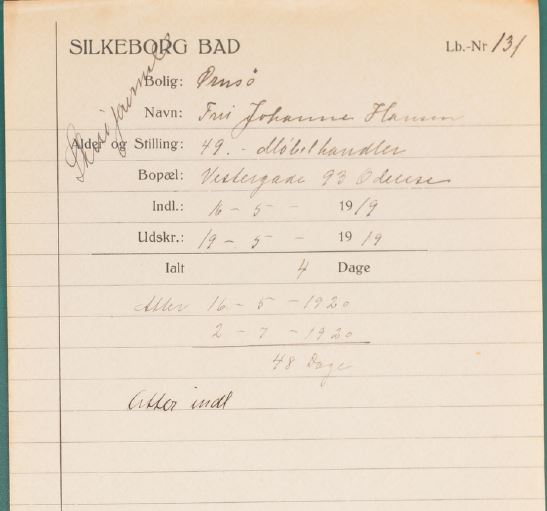 SILKEBORG BAD
Lb.-Nr 131
Bolig: Ørnsö
Navn: Fru Johanne Hansen
Alder og Stilling: 49. - Møbelhandler
Bopæl: Vestergade 93 Odense
Indl.: 16 - 5 - 1919
Udskr.: 19 - 5 - 1919
Ialt 4 Dage
Atter 16 - 5 - 1920
2 - 7 - 1920
48 Dage
Atter indl